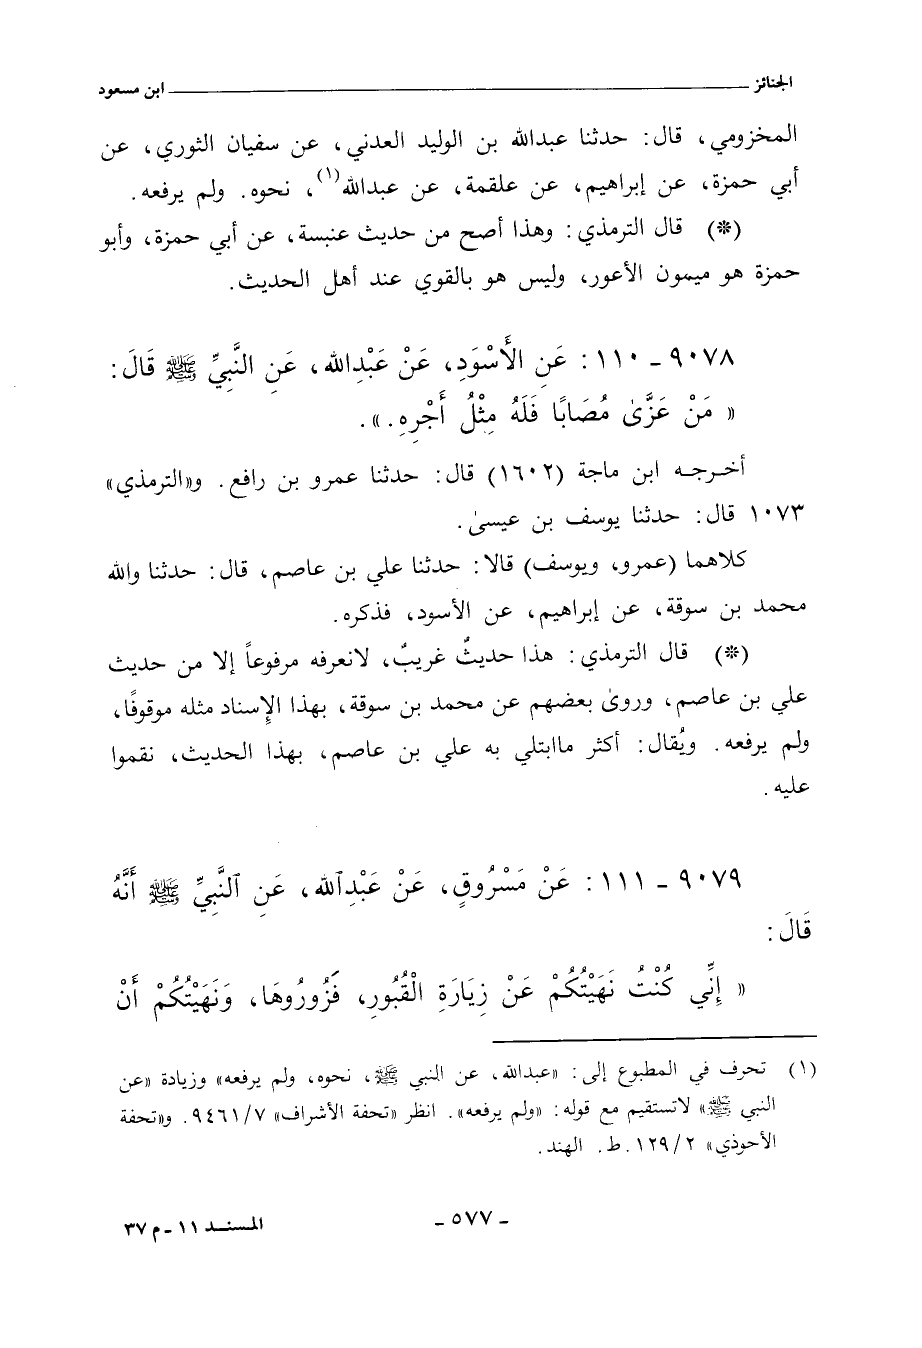 الجنائز ابن مسعود
المخزومي، قال: حدثنا عبدالله بن الوليد العدني، عن سفيان الثوري، عن
أبي حمزة، عن إبراهيم، عن علقمة، عن عبدالله(١)، نحوه. ولم يرفعه.
(*) قال الترمذي: وهذا أصح من حديث عنبسة، عن أبي حمزة، وأبو
حمزة هو ميمون الأعور، وليس هو بالقوي عند أهل الحديث.
٩٠٧٨ - ١١٠: عَنِ الأَسْوَدِ، عَنْ عَبْدِالله، عَنِ النَّبِيِّ ﷺ قَالَ:
« مَنْ عَزَّىٰ مُصَابًا فَلَهُ مِثْلُ أَجْرِهِ.».
أخرجه ابن ماجة (١٦٠٢) قال: حدثنا عمرو بن رافع. و«الترمذي»
١٠٧٣ قال: حدثنا يوسف بن عيسىٰ.
كلاهما (عمرو، ويوسف) قالا: حدثنا علي بن عاصم، قال: حدثنا والله
محمد بن سوقة، عن إبراهيم، عن الأسود، فذكره.
(*) قال الترمذي: هذا حديثٌ غريبٌ، لانعرفه مرفوعاً إلا من حديث
علي بن عاصم، وروىٰ بعضهم عن محمد بن سوقة، بهذا الإِسناد مثله موقوفًا،
ولم يرفعه. ويُقال: أكثر ماابتلي به علي بن عاصم، بهذا الحديث، نقموا
عليه.
٩٠٧٩ - ١١١: عَنْ مَسْرُوقٍ، عَنْ عَبْدِٱلله، عَنِ ٱلنَّبِيِّ ﷺ أَنَّهُ
قَالَ:
« إِنِّي كُنْتُ نَهَيْتُكُمْ عَنْ زِيَارَةِ الْقُبُورِ، فَزُورُوهَا، وَنَهَيْتُكُمْ أَنْ
(١) تحرف في المطبوع إلى: «عبدالله، عن النبي ﷺ، نحوه، ولم يرفعه» وزيادة «عن
النبي ﷺ» لاتستقيم مع قوله: «ولم يرفعه». انظر «تحفة الأشراف» ٩٤٦١/٧. و«تحفة
الأحوذي» ١٢٩/٢.ط. الهند.
- ٥٧٧ - المسند ١١ - م ٣٧